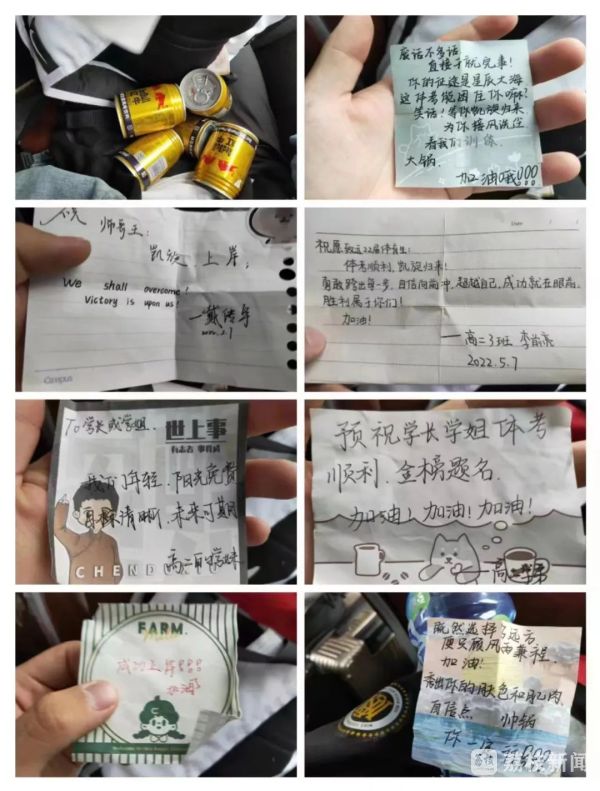 废话不多话
直接干就完事!
你的征途是星辰大海
这体考能困住你嘛?
笑话!等你凯旋归来
为你接风洗尘
看我们训练.
大锅.
加油哦!!!
祝
师哥王:
凯旋上岸;
We shall overcome!
Victory is upon us!
Campus
Date
祝愿致远22届体育生:
体考顺利,凯旋归来!
勇敢踏出每一步,自信向前冲,超越自己,成功就在眼前,
胜利属于你们!
加油!
一高二3班
2022.5.7
To学长或学姐.
世上事
有志者 事竟成
我们年轻.阳光免费
清晰,未来可期
高二的学妹
CHEND
预祝学长学姐体考
顺利.金榜题名.
加油!加油!加油!
FARM
成功上岸!!!
加油
既然选择了远方
便只顾风雨兼程.
加油!
秀出你的肤色和肌肉
自信点 帅锅
你一定行!!!
荔枝新闻